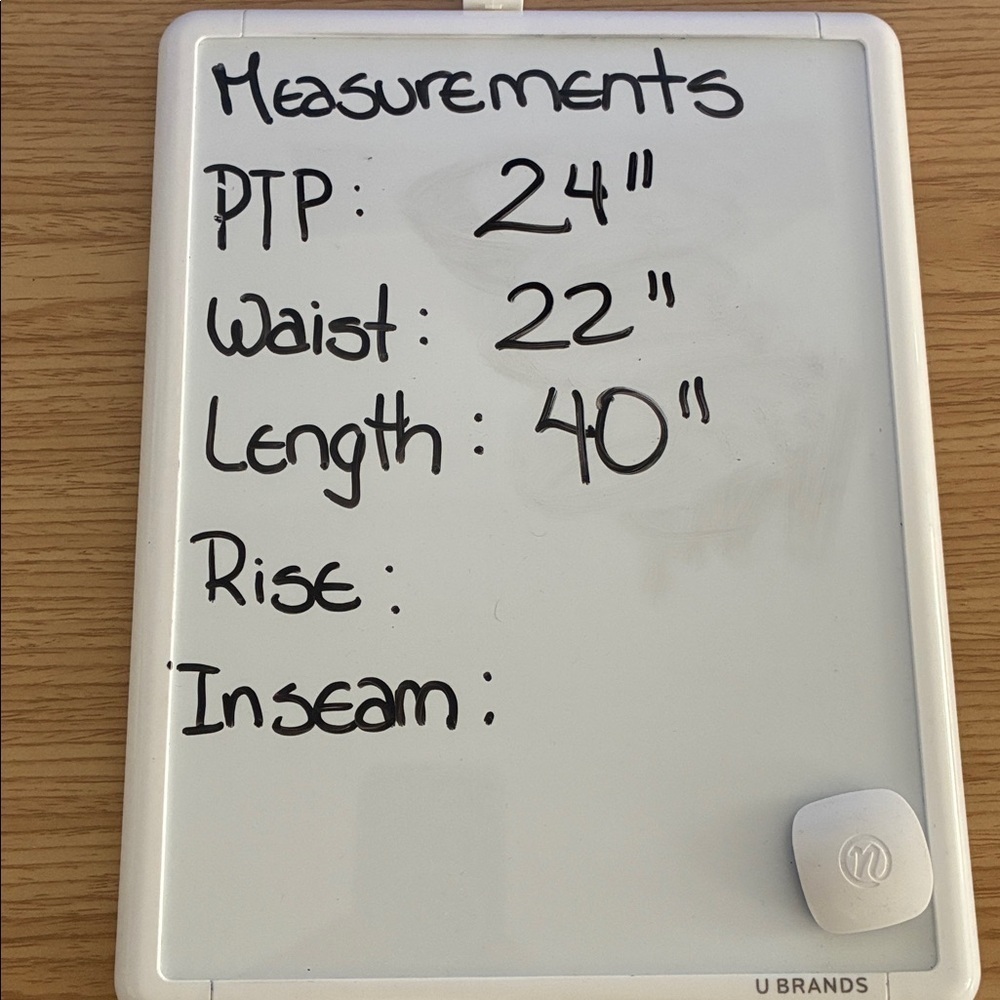 Measurements
PTP: 24"
Waist: 22"
Length: 40"
Rise:
Inseam:
n
U BRANDS